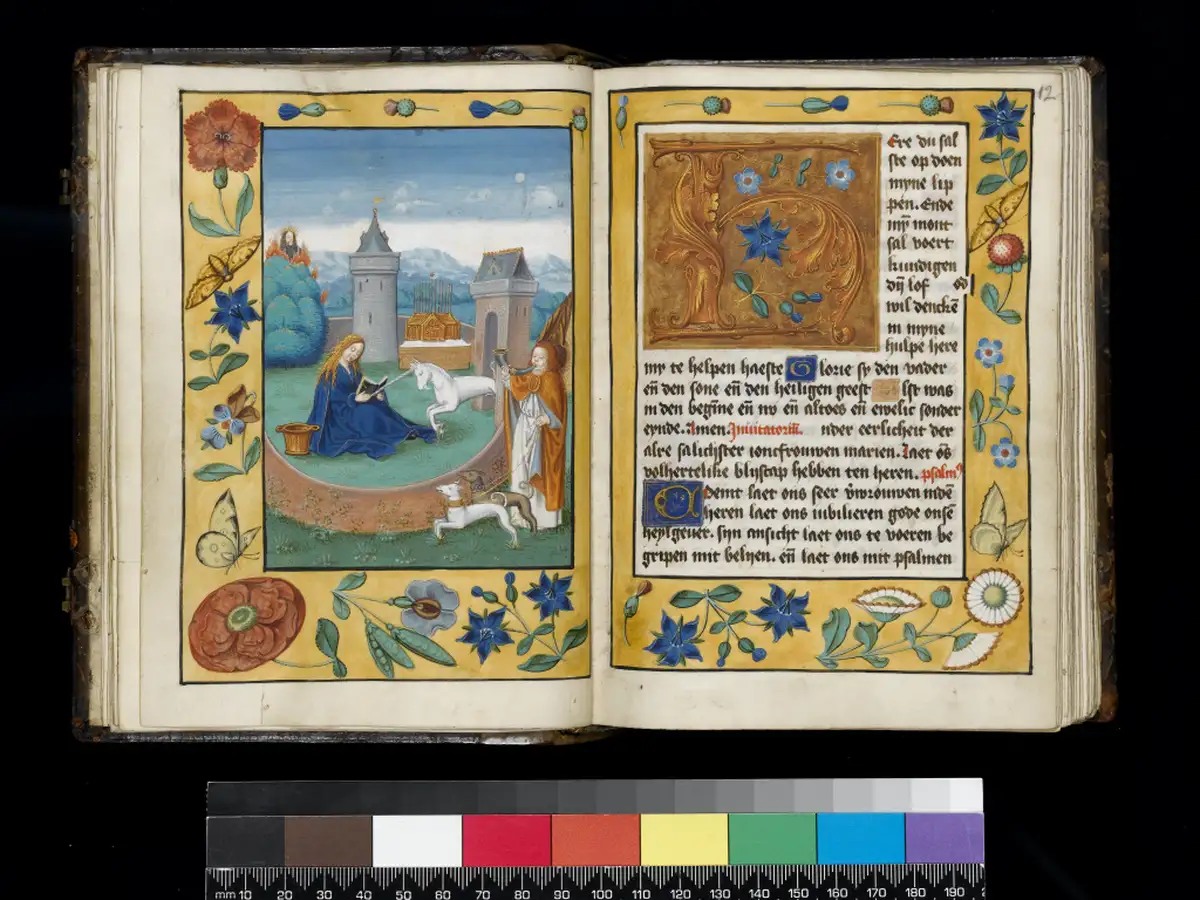 12
Ere du sal
ste op doen
myne lip
pen. Ende
mȳ mont
sal voert
kundigen
dij lof
wil denckē
in myne
hulpe here
my te helpen haeste Glorie sy den vader
eñ den sone eñ den heiligen geest Alst was
in den begīne eñ nv eñ altoes eñ ewelic sonder
eynde. Amen Inuitatoriū. nder eerlicheit der
alre salichster ioncfrouwen marien. Laet ōs
volhertelike blijscap hebben ten heren. psalmꝰ
Coemt laet ons seer v̄vrouwen inden
heren laet ons iubilieren gode onsē
heylgeuer. sijn ansicht laet ons te voeren be
gripen mit belyen. eñ laet ons mit psalmen
mm 10 20 30 40 50 60 70 80 90 100 110 120 130 140 150 160 170 180 190